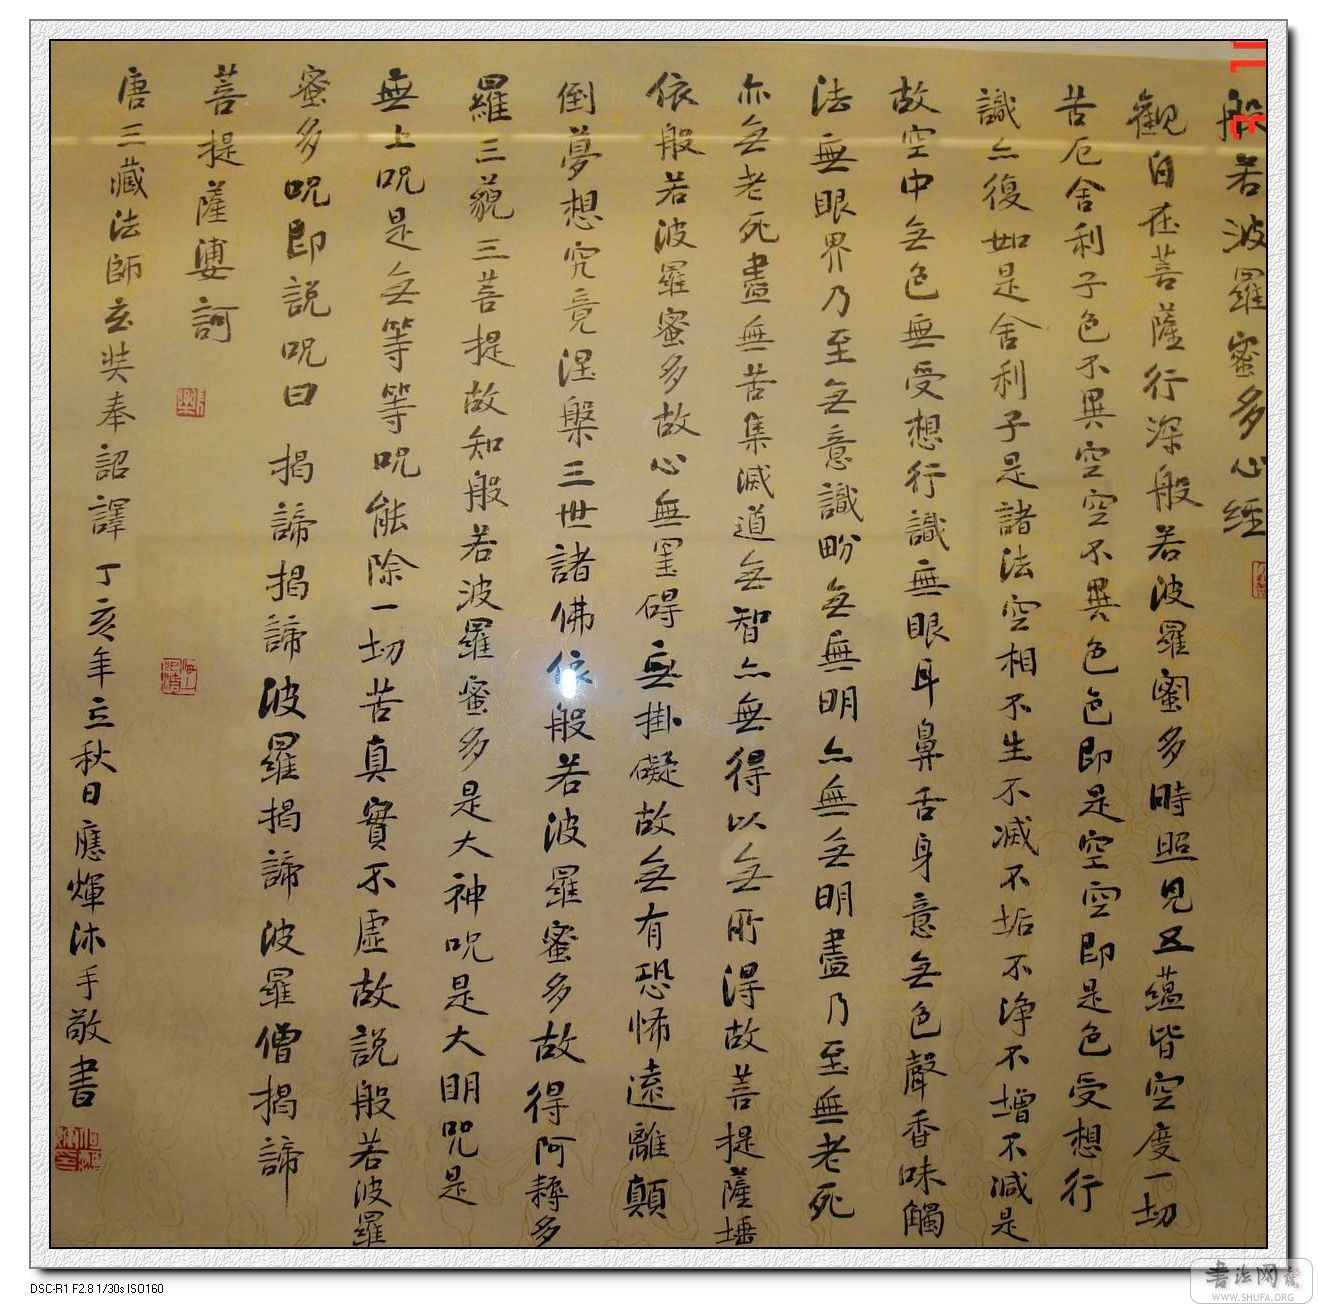 般若波羅蜜多心經
觀自在菩薩行深般若波羅蜜多時照見五蘊皆空度一切
苦厄舍利子色不異空空不異色色即是空空即是色受想行
識亦復如是舍利子是諸法空相不生不滅不垢不淨不增不減是
故空中無色無受想行識無眼耳鼻舌身意無色聲香味觸
法無眼界乃至無意識畍無無明亦無無明盡乃至無老死
亦無老死盡無苦集滅道無智亦無得以無所得故菩提薩埵
依般若波羅蜜多故心無罣碍無掛礙故無有恐怖遠離顛
倒夢想究竟涅槃三世諸佛依般若波羅蜜多故得阿耨多
羅三藐三菩提故知般若波羅蜜多是大神咒是大明咒是
無上咒是無等等咒能除一切苦真實不虛故說般若波羅
蜜多咒即說咒曰 揭諦揭諦波羅揭諦波羅僧揭諦
菩提薩婆訶
唐三藏法師玄奘奉詔譯丁亥年立秋日應煇沐手敬書
DSC-R1 F2.8 1/30s ISO160
書法网
WWW.SHUFA.ORG